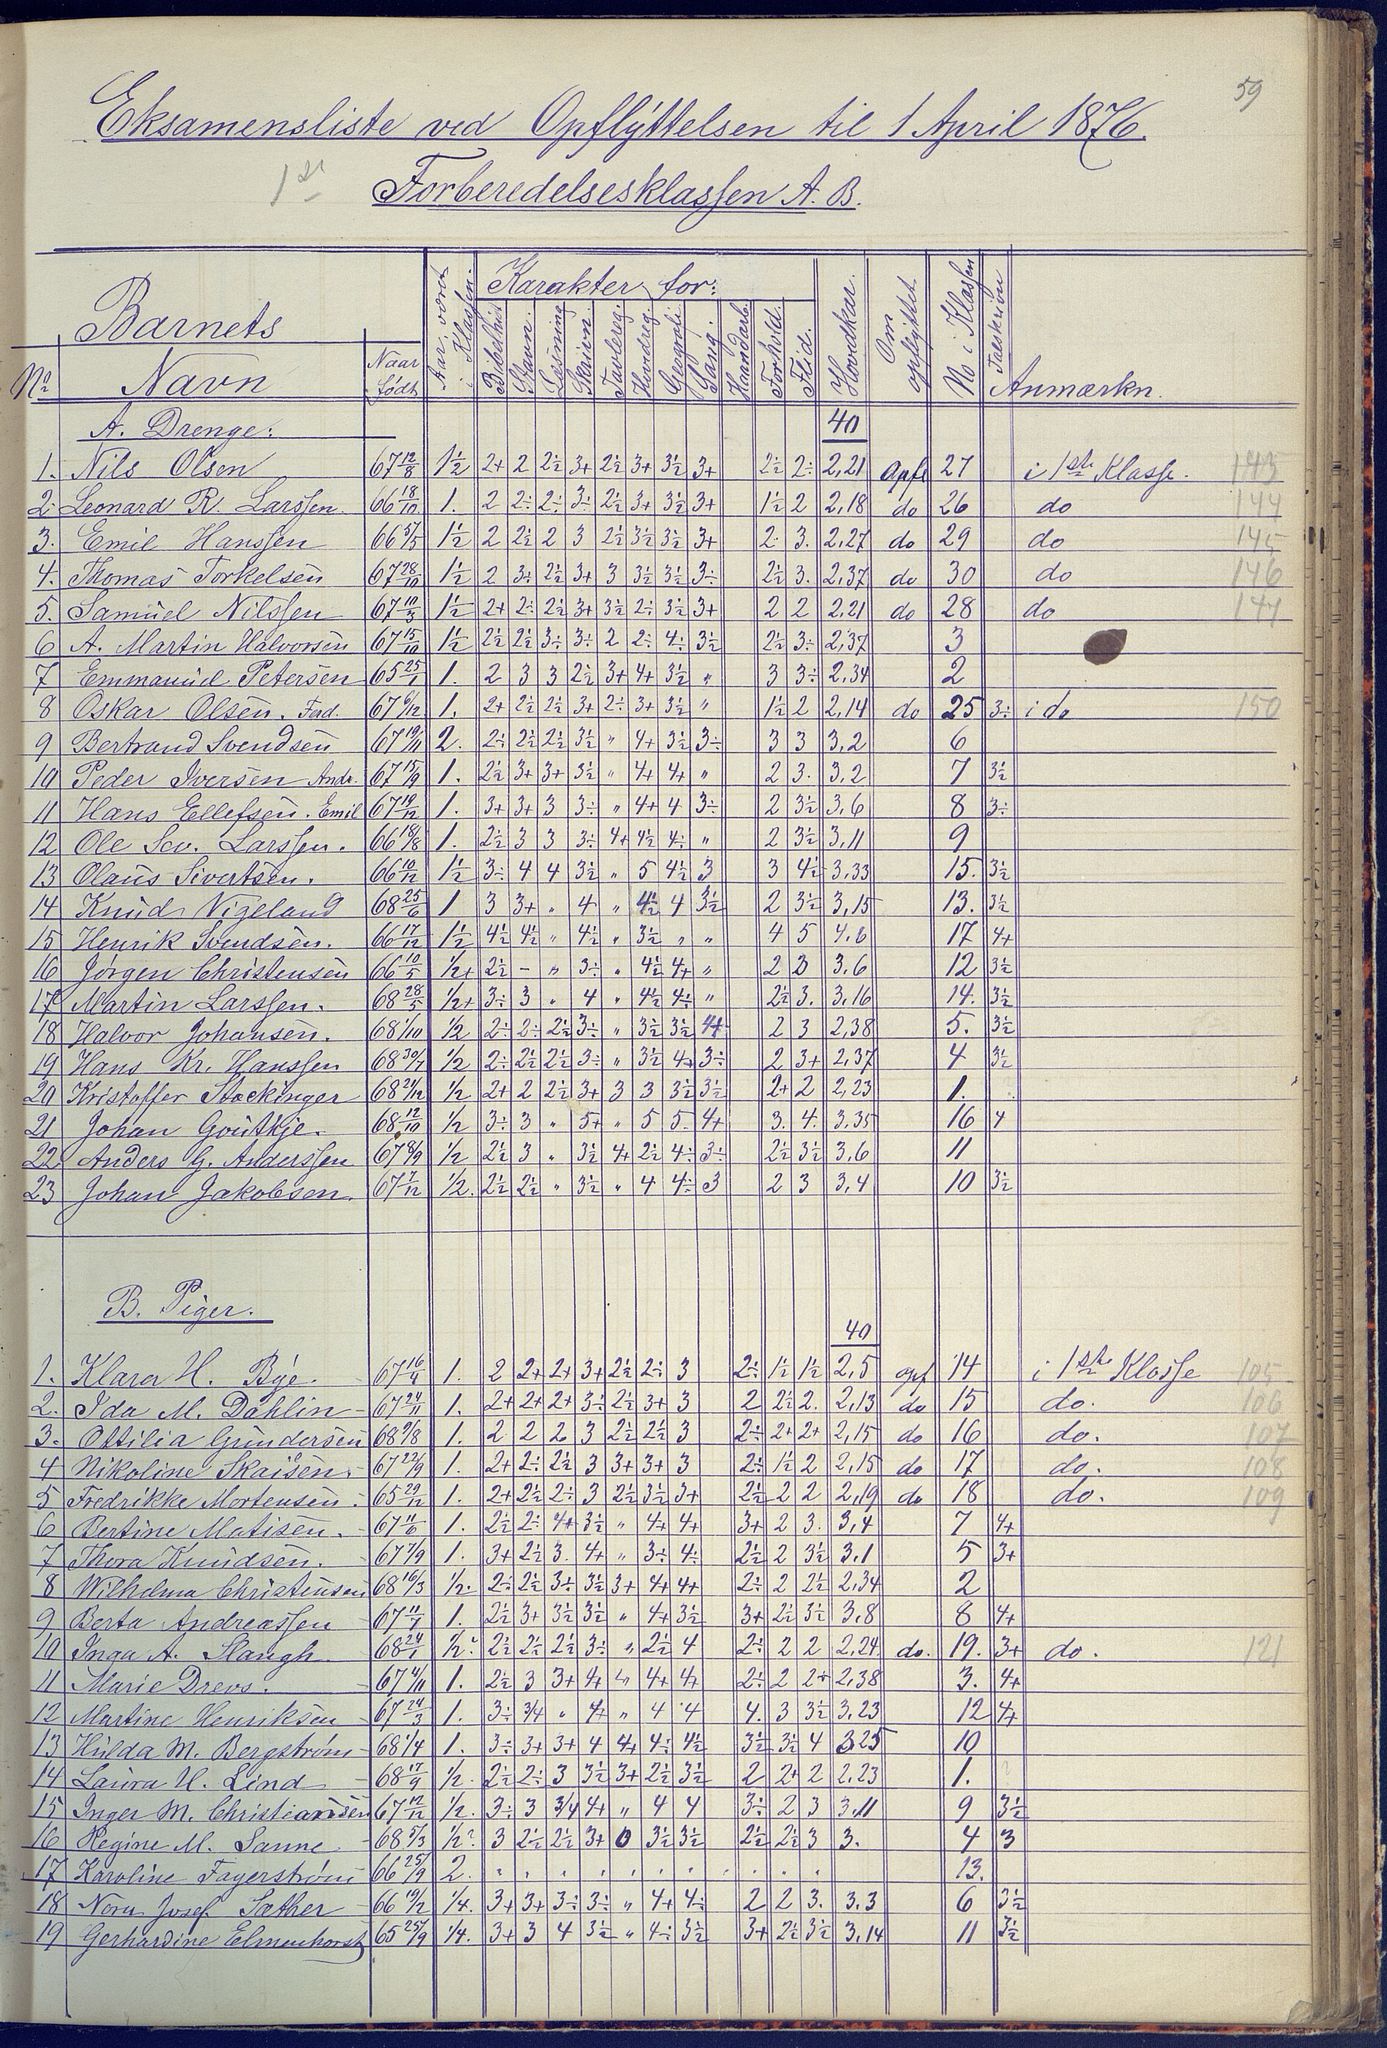 59
Eksamensliste ved Opflyttelsen til 1 April 1876.
1ste Forberedelsesklassen A. B.
No Barnets Navn Naar født Aar været i Klassen. Karakter for: Bibelhis Stavn. Læsning Skrivn. Tavlereg. Hovdreg. Geografi Sang. Haandarb. Forhold. Flid. Hovedkar. Om opflyttet No i Klassen Talskrivn Anmærkn.
A. Drenge: 40
1. Nils Olsen 67 12/8 1½ 2+ 2 2½ 3+ 2½ 3+ 3½ 3+ 2½ 2÷ 2,21 opfl 27 i 1ste Klasse. 143
2. Leonard R. Larssen 66 18/10 1. 2 2÷ 2÷ 3÷ 2½ 3+ 3½ 3+ 1½ 2 2,18 do 26 do 144
3. Emil Hanssen 66 1½ 2 2½ 2 3 2½ 3½ 3½ 3+ 2. 3. 2,27 do 29 do 145
4. Thomas Torkelsen 67 28/10 1½ 2 3÷ 2½ 3+ 3 3½ 3½ 3÷ 2½ 3. 2,37 do 30 do 146
5. Samuel Nilssen 67 10/3 1½ 2+ 2÷ 2½ 3+ 3½ 2÷ 3½ 3+ 2 2 2,21 do 28 do 147
6 A. Martin Halvorsen 67 15/10 1½ 2½ 2½ 3÷ 3÷ 2 2÷ 4÷ 3½ 2½ 3÷ 2,37 3
7 Emmanuel Petersen 65 25/1 1. 2 3 3 2½ 3+ 4+ 3½ " 3 3÷ 2,34 2
8 Oskar Olsen. Ferd. 67 6/12 1. 2+ 2½ 2½ 3+ 2÷ 3+ 3½ " 1½ 2 2,14 do 25 3÷ i do 150
9 Bertrand Svendsen 67 19/11 2. 2÷ 2½ 2½ 3½ " 4+ 3½ 3÷ 3 3 3,2 6
10 Peder Iversen Andr. 67 15/9 1. 2½ 3+ 3+ 3½ " 4+ 4+ " 2 3. 3,2 7 3½
11 Hans Ellefsen. Emil 67 19/12 1. 3+ 3+ 3 3÷ " 4+ 4 3÷ 2 3½ 3,6 8 3÷
12 Ole Sev. Larssen. 66 18/8 1. 2½ 3 3 3÷ 4+ 4½ 4÷ " 2 3½ 3,11 9
13 Olaus Sivertsen. 66 10/12 1½ 3÷ 4 4 3½ " 5 4½ 3 3 4½ 3,33 15. 3½
14 Knud Vigeland 68 25/6 1 3 3+ " 4 " 4½ 4 3½ 2 3½ 3,15 13. 3½
15 Henrik Svendsen. 66 17/12 1½ 4½ 4½ " 4½ " 3½ " " 4 5 4,6 17 4+
16 Jörgen Christensen 66 10/5 ½+ 2½ - " 3÷ " 4½ 4+ " 2 3 3,6 12 3½
17 Martin Larssen. 68 28/5 ½+ 3÷ 3 " 4 " 4½ 4÷ " 2½ 3. 3,16 14. 3½
18 Halvor Johansen. 68 1/10 ½ 2÷ 2÷ 2½ 3÷ " 3½ 3½ 4+ 2 3 2,38 5. 3½
19 Hans Kr. Hanssen 68 30/7 ½ 2÷ 2½ 2½ 3÷ " 3½ 4+ 3÷ 2 3+ 2,37 4 3½
20 Kristoffer Stockinger 68 21/12 ½ 2+ 2 2½ 3+ 3 3 3½ 3½ 2+ 2 2,23 1.
21 Johan Goutkje. 68 12/10 ½ 3÷ 3 " 5+ " 5 5. 4+ 3. 4. 3,35 16 4
22 Anders G. Anderssen 67 8/9 ½ 2½ 3 " 3½ 4+ 2½ 4÷ 3÷ 2½ 3½ 3,6 11
23 Johan Jakobsen. 67 7/12 ½. 2½ 2½ " 3½ " 4 4÷ 3 2 3 3,4 10 3½
B. Piger.
40
1. Klara H. Bye. 67 16/4 1. 2 2+ 2+ 3+ 2½ 2÷ 3 2÷ 1½ 1½ 2,5 opf 14 i 1ste Klasse 105
2. Ida M. Dahlin 67 24/11 1. 2+ 2+ 2+ 3÷ 2½ 3+ 3 2 2½ 2. 2,13 do 15 do. 106
3. Ottilia Gundersen 68 9/8 1. 2 2 2 3 2½ 2½ 3 2÷ 2+ 2+ 2,15 do 16 do. 107
4 Nikoline Skaisen. 67 22/9 1. 2+ 2÷ 2½ 3 3+ 3+ 3 2÷ 1½ 2 2,15 do 17 do. 108
5 Fredrikke Mortensen. 65 29/12 1. 2+ 2½ 2÷ 3 2½ 3½ 3+ 2½ 2 2 2,19 do 18 do. 109
6 Bertine Matisen. 67 11/6 1. 2½ 2÷ 4+ 3½ " 4+ 4+ 3+ 2 3. 3,4 7 4+
7 Thora Knudsen. 67 7/9 1. 3+ 2½ 3. 4+ " 3÷ 4÷ 2½ 2 3½ 3,1 5 3+
8 Wilhelma Christensen 68 16/3 ½. 2÷ 2½ 3÷ 3½ 3+ 4+ 4+ 2÷ 2 2½ 2,34 2
9 Berta Andreassen 67 11/7 1. 2½ 3+ 3½ 3½ " 4+ 3½ 3+ 2½ 3½ 3,8 8 4+
10 Inga A. Slaugh. 68 24/1 ½? 2½ 2½ 2½ 3÷ " 2½ 4 2÷ 2 2 2,24 do. 19. 3+ do. 121
11 Marie Drevs. 67 4/11 1. 2½ 3 3+ 4+ " 4+ 4+ 2÷ 2 2+ 2,38 3. 4+
12 Martine Henriksen 67 24/3 1. 3÷ 3/4 " 4+ " 4 4 4. 3 3½ 3,23 12 4+
13 Hulda M. Bergstrøm 68 1/4 1. 3÷ 3+ 3+ 4 4+ 4÷ 4½ 3½ 3½ 4 3,25 10
14 Laura H. Lind 68 17/9 ½. 2½ 2÷ 3 3½ 3+ 2½ 3½ 2 2+ 2 2,23 1.
15 Inger M. Christiansen 67 12/12 ½. 3÷ 3 3/4 4+ " 4 4 3÷ 2 3 3,11 9 3½
16 Regine M. Sanne 68 5/3 ½? 3 2½ 2½ 3+ 0 3½ 3½ 2½ 2½ 3 3. 4 3
17 Karoline Fagerstrøm 66 25/9 2. " " " " " " " " " " 13.
18 Nora Josef. Sæther 66 19/12 ¼. 3+ 3+ 3÷ 3÷ " 4+ 4÷ 2 2 3. 3,3 6 3½
19 Gerhardine Elmenhorst 65 25/9 ¼. 3+ 3 4 3½ " 4÷ 3½ 3+ 2½ 3½ 3,14 11 3½